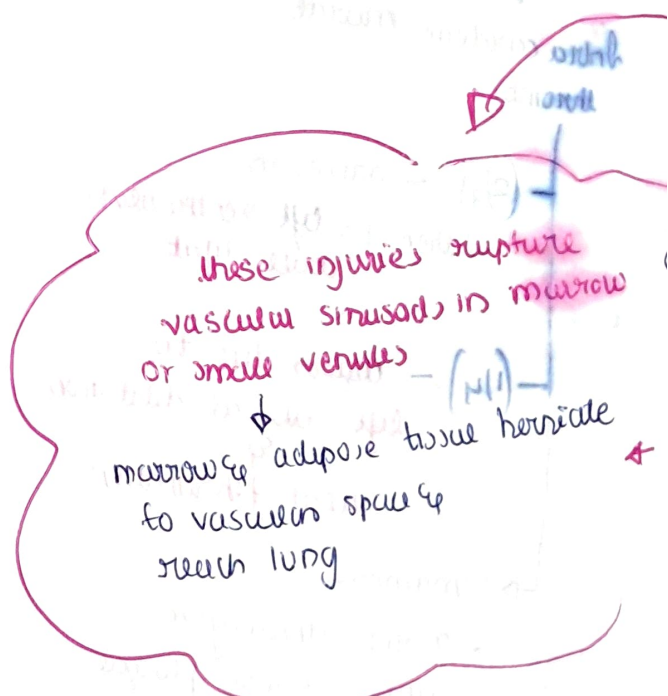 these injuries rupture
vascular sinusods in marrow
or small venules
↓
marrow & adipose tissue herniate
to vascular space &
reach lung